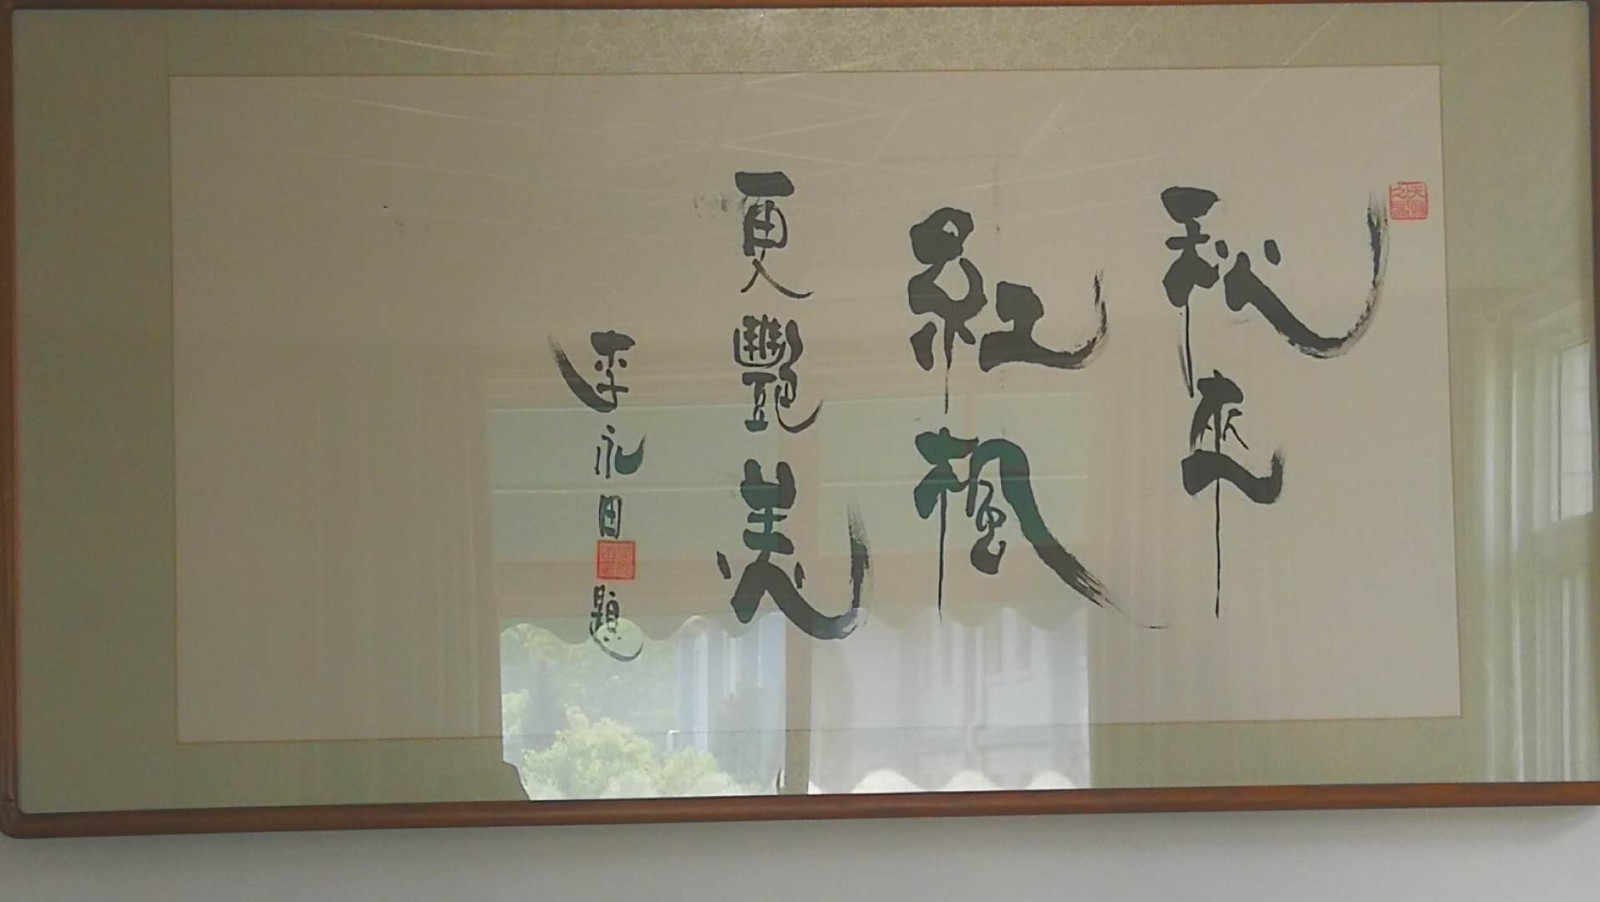 秋來
紅楓
更豔美
李永田題